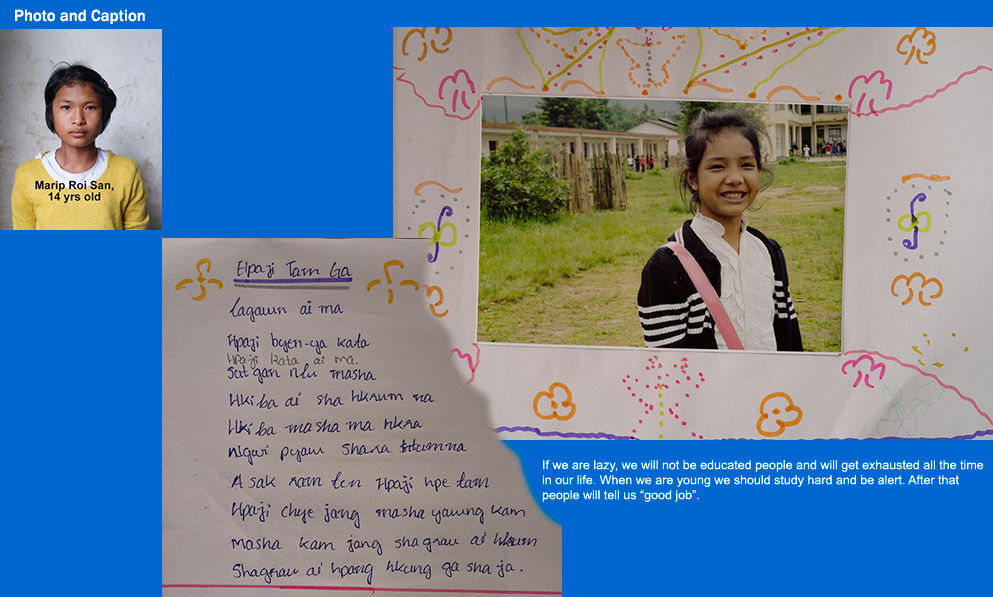 Photo and Caption
Marip Roi San,
14 yrs old
Hpaji Tam Ga
lagawn ai ma
Hpaji byen-ya kata
Hpaji kata ai ma.
Sut gan nlu masha
Hkiba ai sha hkrum na
Hkiba masha ma hkra
nigwi pyaw shara
A sak ram ten Hpaji hpe tam
Hpaji chye jang masha yawng kam
masha kam jang shagrau ai hkrum
Shagrau ai hpang hkung ga sha ja.
If we are lazy, we will not be educated people and will get exhausted all the time
in our life. When we are young we should study hard and be alert. After that
people will tell us “good job”.